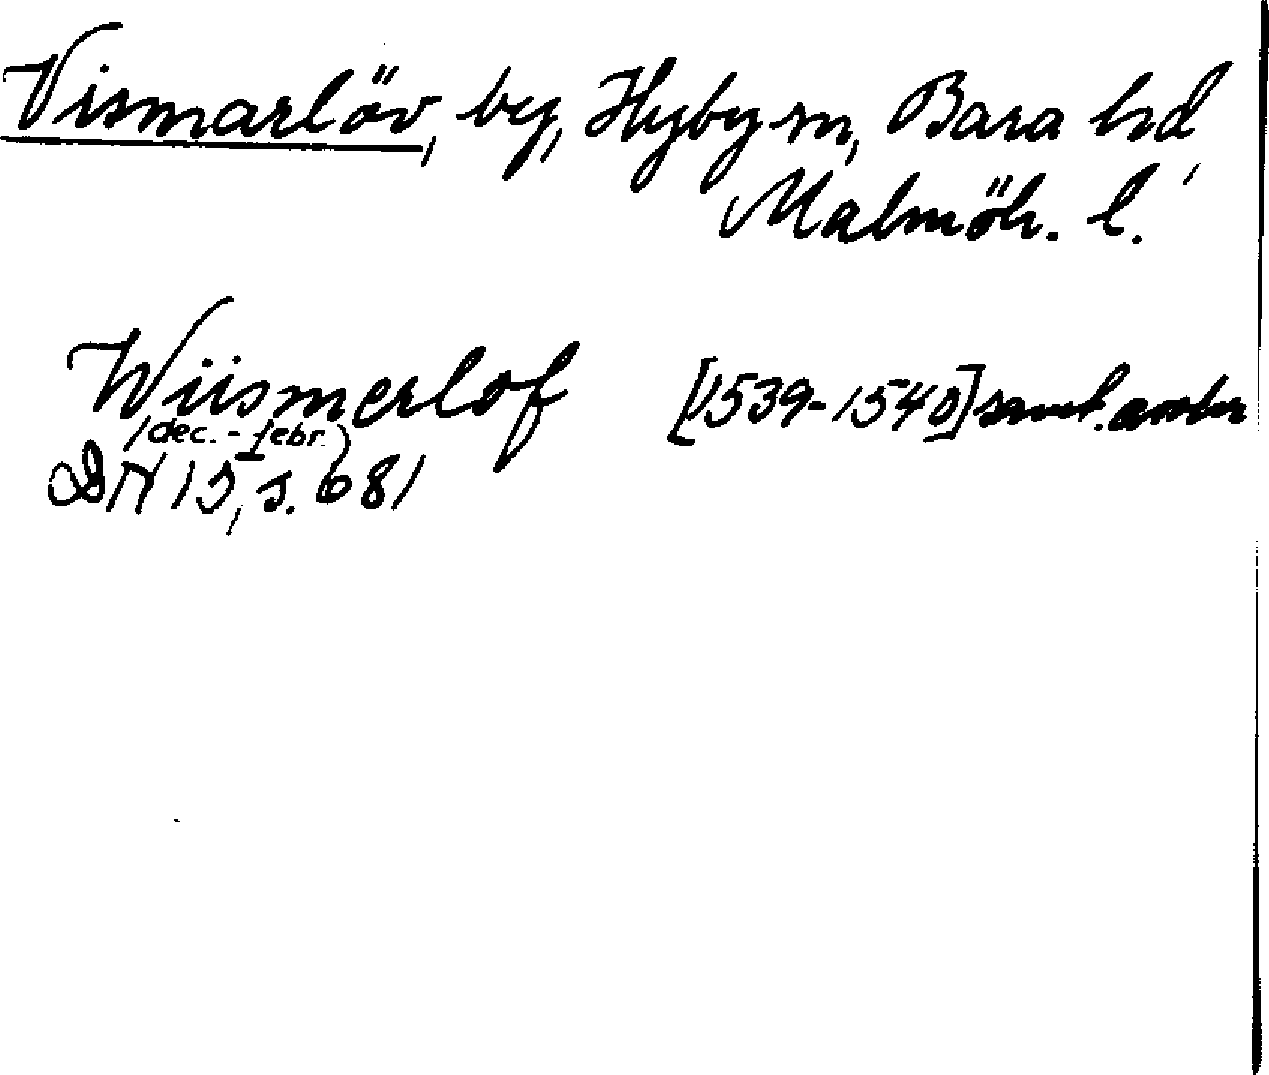 Vismarlöv, by, Hyby sn, Bara hd,
Malmöh. l.
Wiismerlof [1539-1540] samt.
(dec. - febr.)
DN 15, s. 681